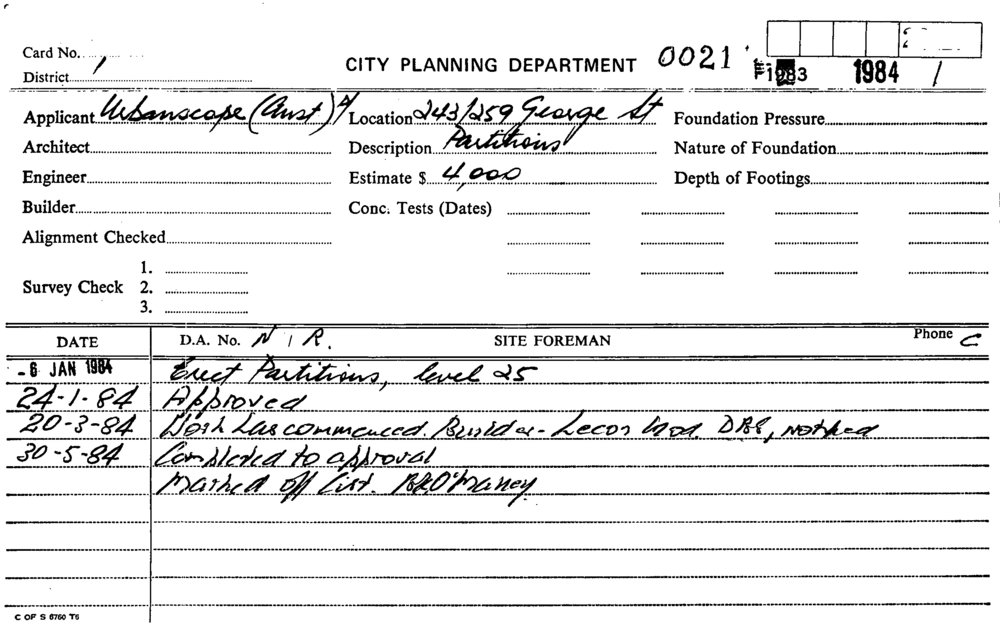 Card No.
District 1
CITY PLANNING DEPARTMENT 0021 1983 1984 /
Applicant Urbanscape (Aust) Location 243/259 George St Foundation Pressure
Architect Description Partitions Nature of Foundation
Engineer Estimate $ 4,000 Depth of Footings
Builder Conc. Tests (Dates)
Alignment Checked
1.
Survey Check 2.
3.
DATE D.A. No. N/R. SITE FOREMAN Phone C
- 6 JAN 1984 Erect Partitions, level 25
24-1-84 Approved
20-3-84 Work has commenced. Builder - DBS, notified
30-5-84 Completed to approval
Marked off List.
C OF S 6760 T6